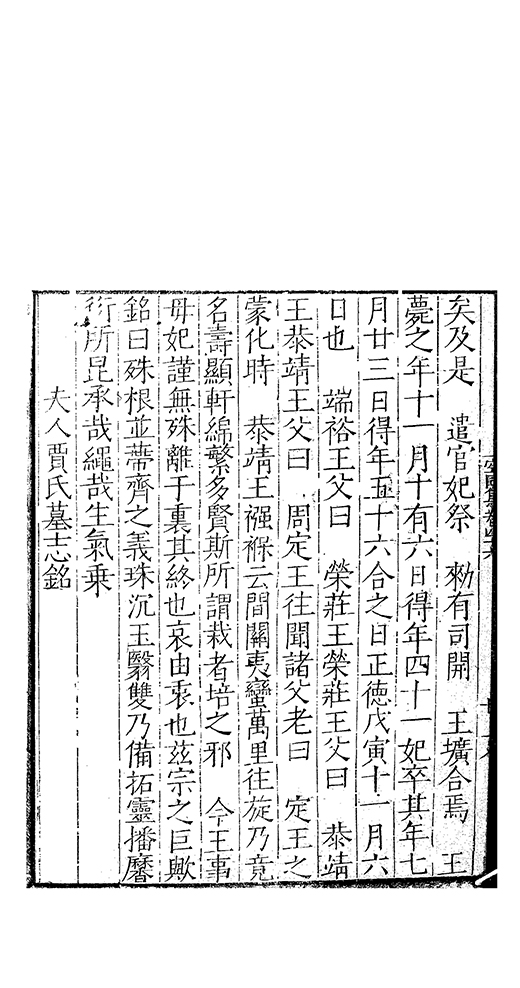 矣及是　遣官妃祭　勑有司開　王壙合焉　王
薨之年十一月十有六日得年四十一妃卒其年七
月廿三日得年五十六合之日正德戊寅十一月六
日也　端裕王父曰　榮莊王榮莊王父曰　恭靖
王恭靖王父曰　周定王往聞諸父老曰　定王之
蒙化時　恭靖王襁褓云間關夷蠻萬里往旋乃竟
名壽顯軒綿繁多賢斯所謂栽者培之邪　今王事
母妃謹無殊離于裏其終也哀由衷也茲宗之巨歟
銘曰殊根並蔕齊之義珠沉玉翳雙乃備拓靈播釐
衍所昆承哉繩哉生氣乗
夫人賈氏墓志銘